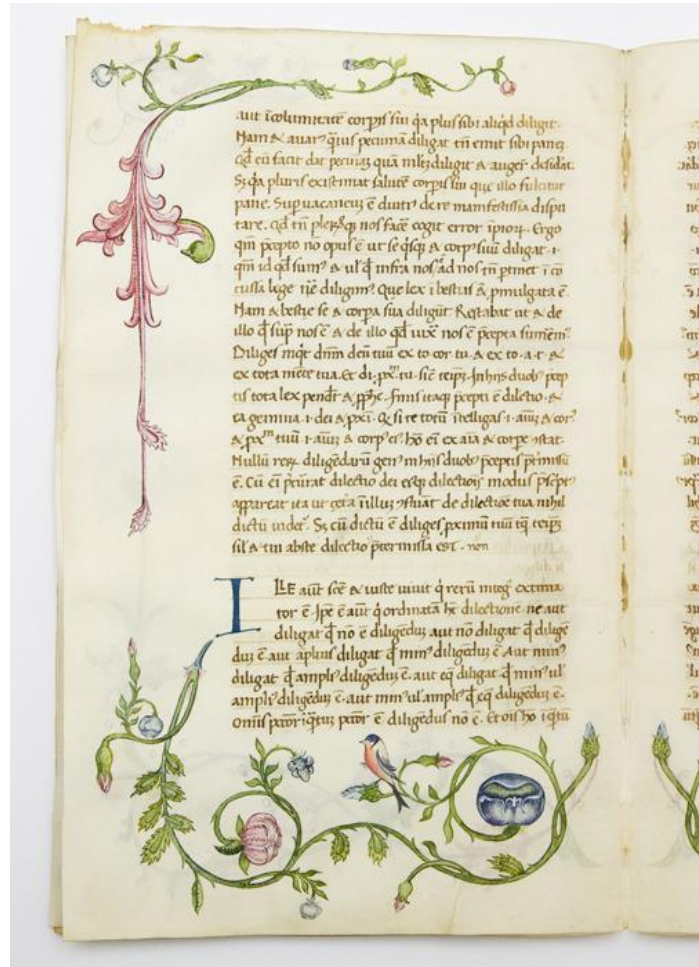 aut īcolumitatē corpis sui q̄a plus sibi aliq̄d diligit.
Nam & auar' q̄uis pecuniā diligat tn̄ emit sibi panē.
Qd cū facit dat pecuniā quā diligit & auger- desidat.
Sȝ q̄a pluris existimat salutē corpis sui que illo fulcitur
pane. Supuacaneū ē diuti' de re manifestissima dispu
tare. qd tn̄ nos facē cogit error īpiorꝝ. Ergo
qm̄ p̄cepto no opus ē ut se q̄sqꝫ & corp' suū diligat. i.
qm̄ id qd sum' & ul' q̄d infra nos ad nos tn̄ ptinet ī cō
cussa lege diligim'. Que lex ī bestias & pmulgata ē.
Nam & bestie se & corpa sua diligūt Restabat ut & de
illo q̄d sup nos ē & de illo qd iuxᵃ nos ē p̄cepta sumem'.
Diliges inqt dn̄m deū tuū ex to. cor. tu. & ex to. a. t. &
ex tota mēte tua. Et di. pxᵐ. tu. sic teipȝ. In his duob' p̄cep
tis tota lex pendȝ & pphē. Finis itaqꝫ p̄cepti ē dilectio. &
ea gemina. i. dei & pxī. Q̄ si te totū ītelligas. i. aīm & cor'
& pxᵐ tuū. i. aīm & corp' ei'. hō eī ex aīa & corpe ɔstat.
Nullū rerꝝ diligēdarū gen' in his duob' p̄ceptis p̄missū
ē. Cū eī p̄currat dilectio dei eiusqꝫ dilectiōis modus p̄scpt'
appareat ita ut cet̄a ī illū ɔfluāt de dilectiōe tua nihil
dictū videt'. Sȝ cū dictū ē diliges pximū tuū tāq̄ teipȝ
sil' & tui abs te dilectio p̄termissa est. non
ILLE aut scē & iuste uiuit q̄ rerū integ' extima
tor ē. Ipē ē aut q̄ ordinatā hȝ dilectionē. ne aut
diligat q̄d nō ē diligēdū aut nō diligat q̄d diligē
dū ē. aut āplius diligat q̄d min' diligēdū ē. Aut min'
diligat q̄d ampli' diligēdū ē. aut eq̄ diligat q̄d min' ul'
ampli' diligēdū ē. aut min' ul' ampli' q̄d eq̄ diligēdū ē.
Omis pctor īq̄tū pctor ē diligēdus nō ē. Et ois hō īq̄tū